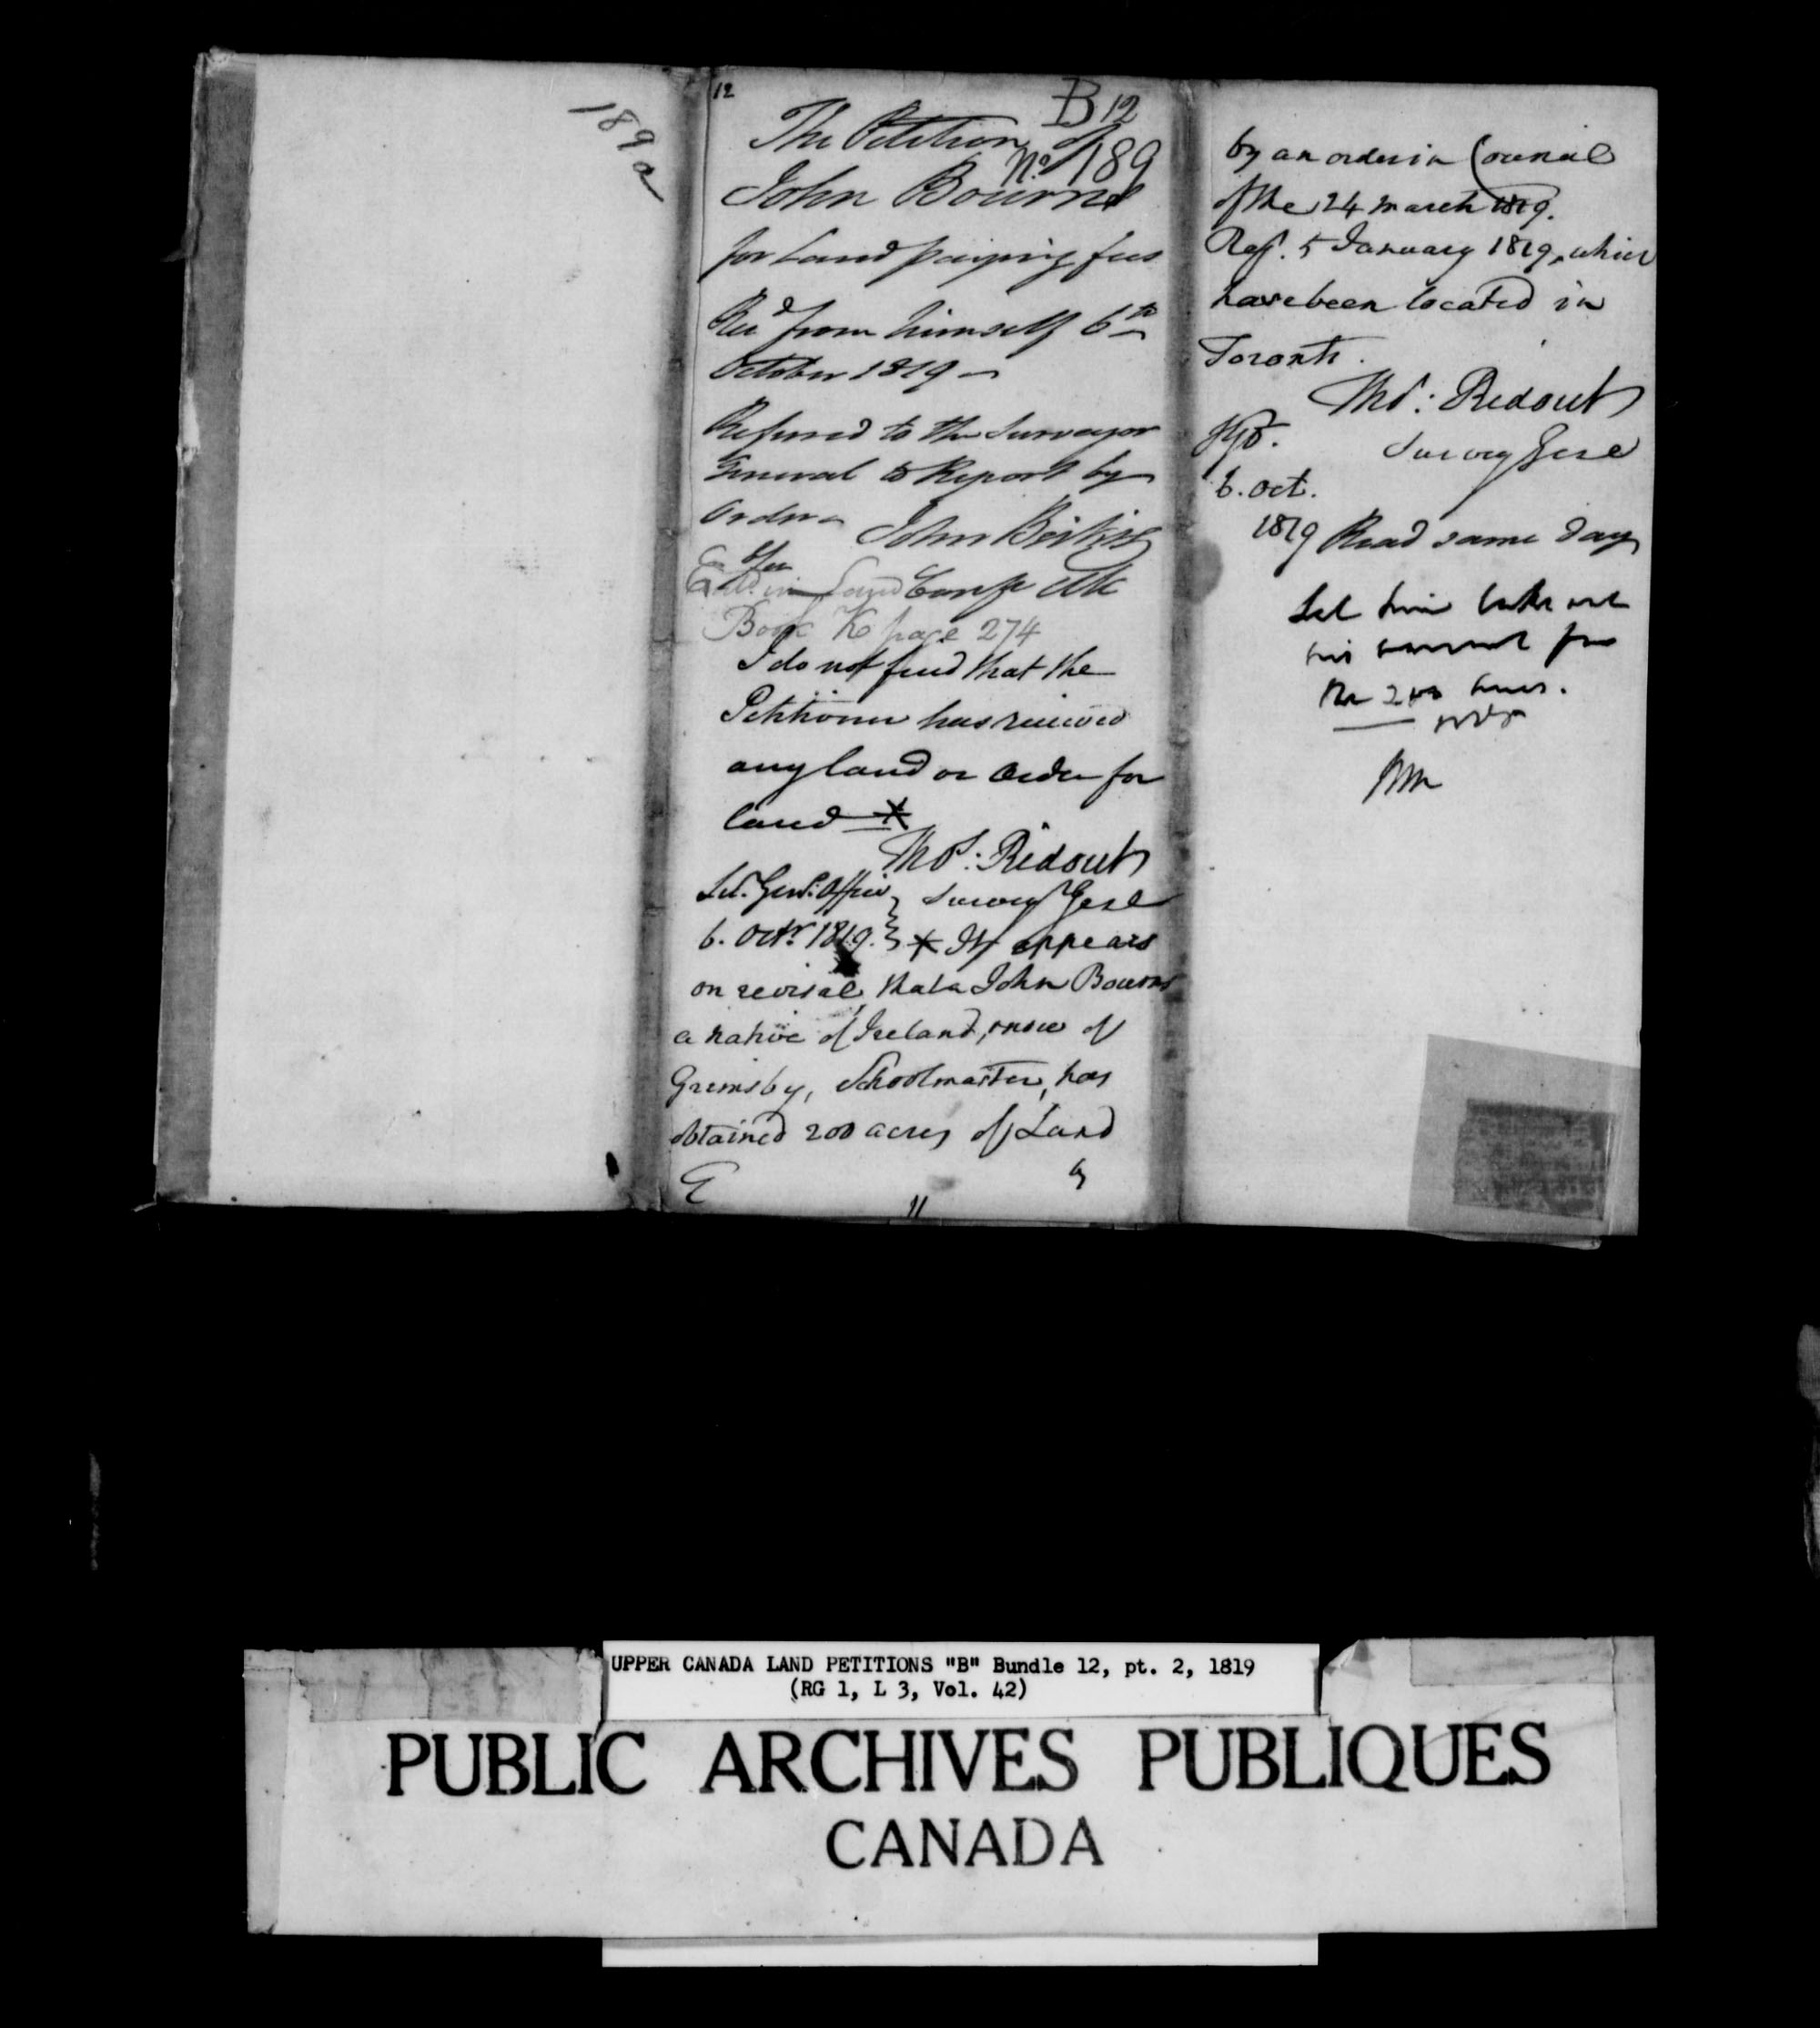 189a
12
B 12
The Petition of
No 189
John Bourns
for Land paying fees
Recd from himself 6th
October 1819
Referred to the Surveyor
General to Report by
Order
John Beikie
Entd in Land
Book K page 274
I do not find that the
Petitioner has received
any land or order for
land *
Thos: Ridout
Survey Genl
6. Octr 1819.
* It appears
on revisal, that a John Bourns
a native of Ireland, now of
Grimsby, Schoolmaster, has
obtained 200 acres of Land
by
11
by an order in Council
of the 24 March 1819.
Ref. 5 January 1819, which
have been located in
Toronto.
Thos: Ridout
Survey Genl
6. Oct.
1819 Read same day
Let him take out
his
the 200 acres.
UPPER CANADA LAND PETITIONS "B" Bundle 12, pt. 2, 1819
(RG 1, L 3, Vol. 42)
PUBLIC ARCHIVES PUBLIQUES
CANADA